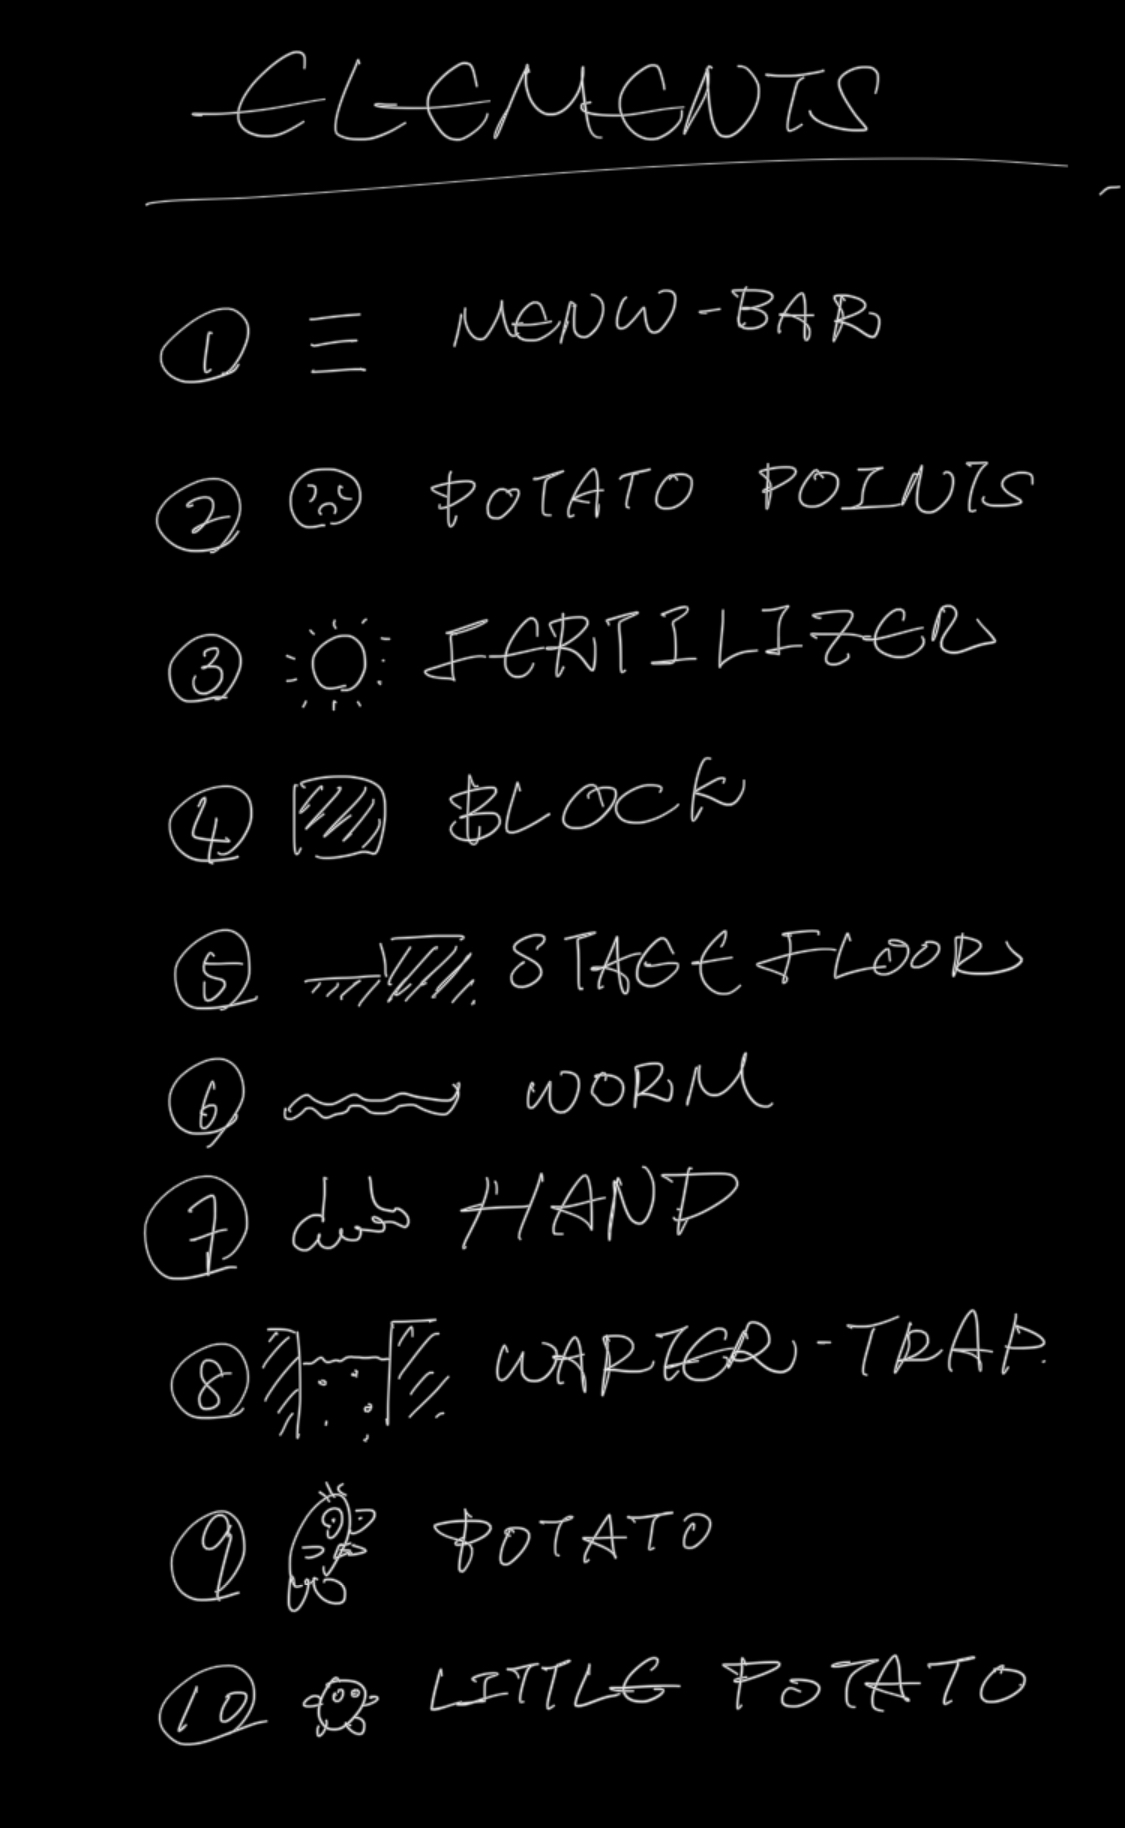 ELEMENTS
1 MENU-BAR
2 POTATO POINTS
3 FERTILIZER
4 BLOCK
5 STAGE FLOOR
6 WORM
7 HAND
8 WARTER-TRAP.
9 POTATO
10 LITTLE POTATO